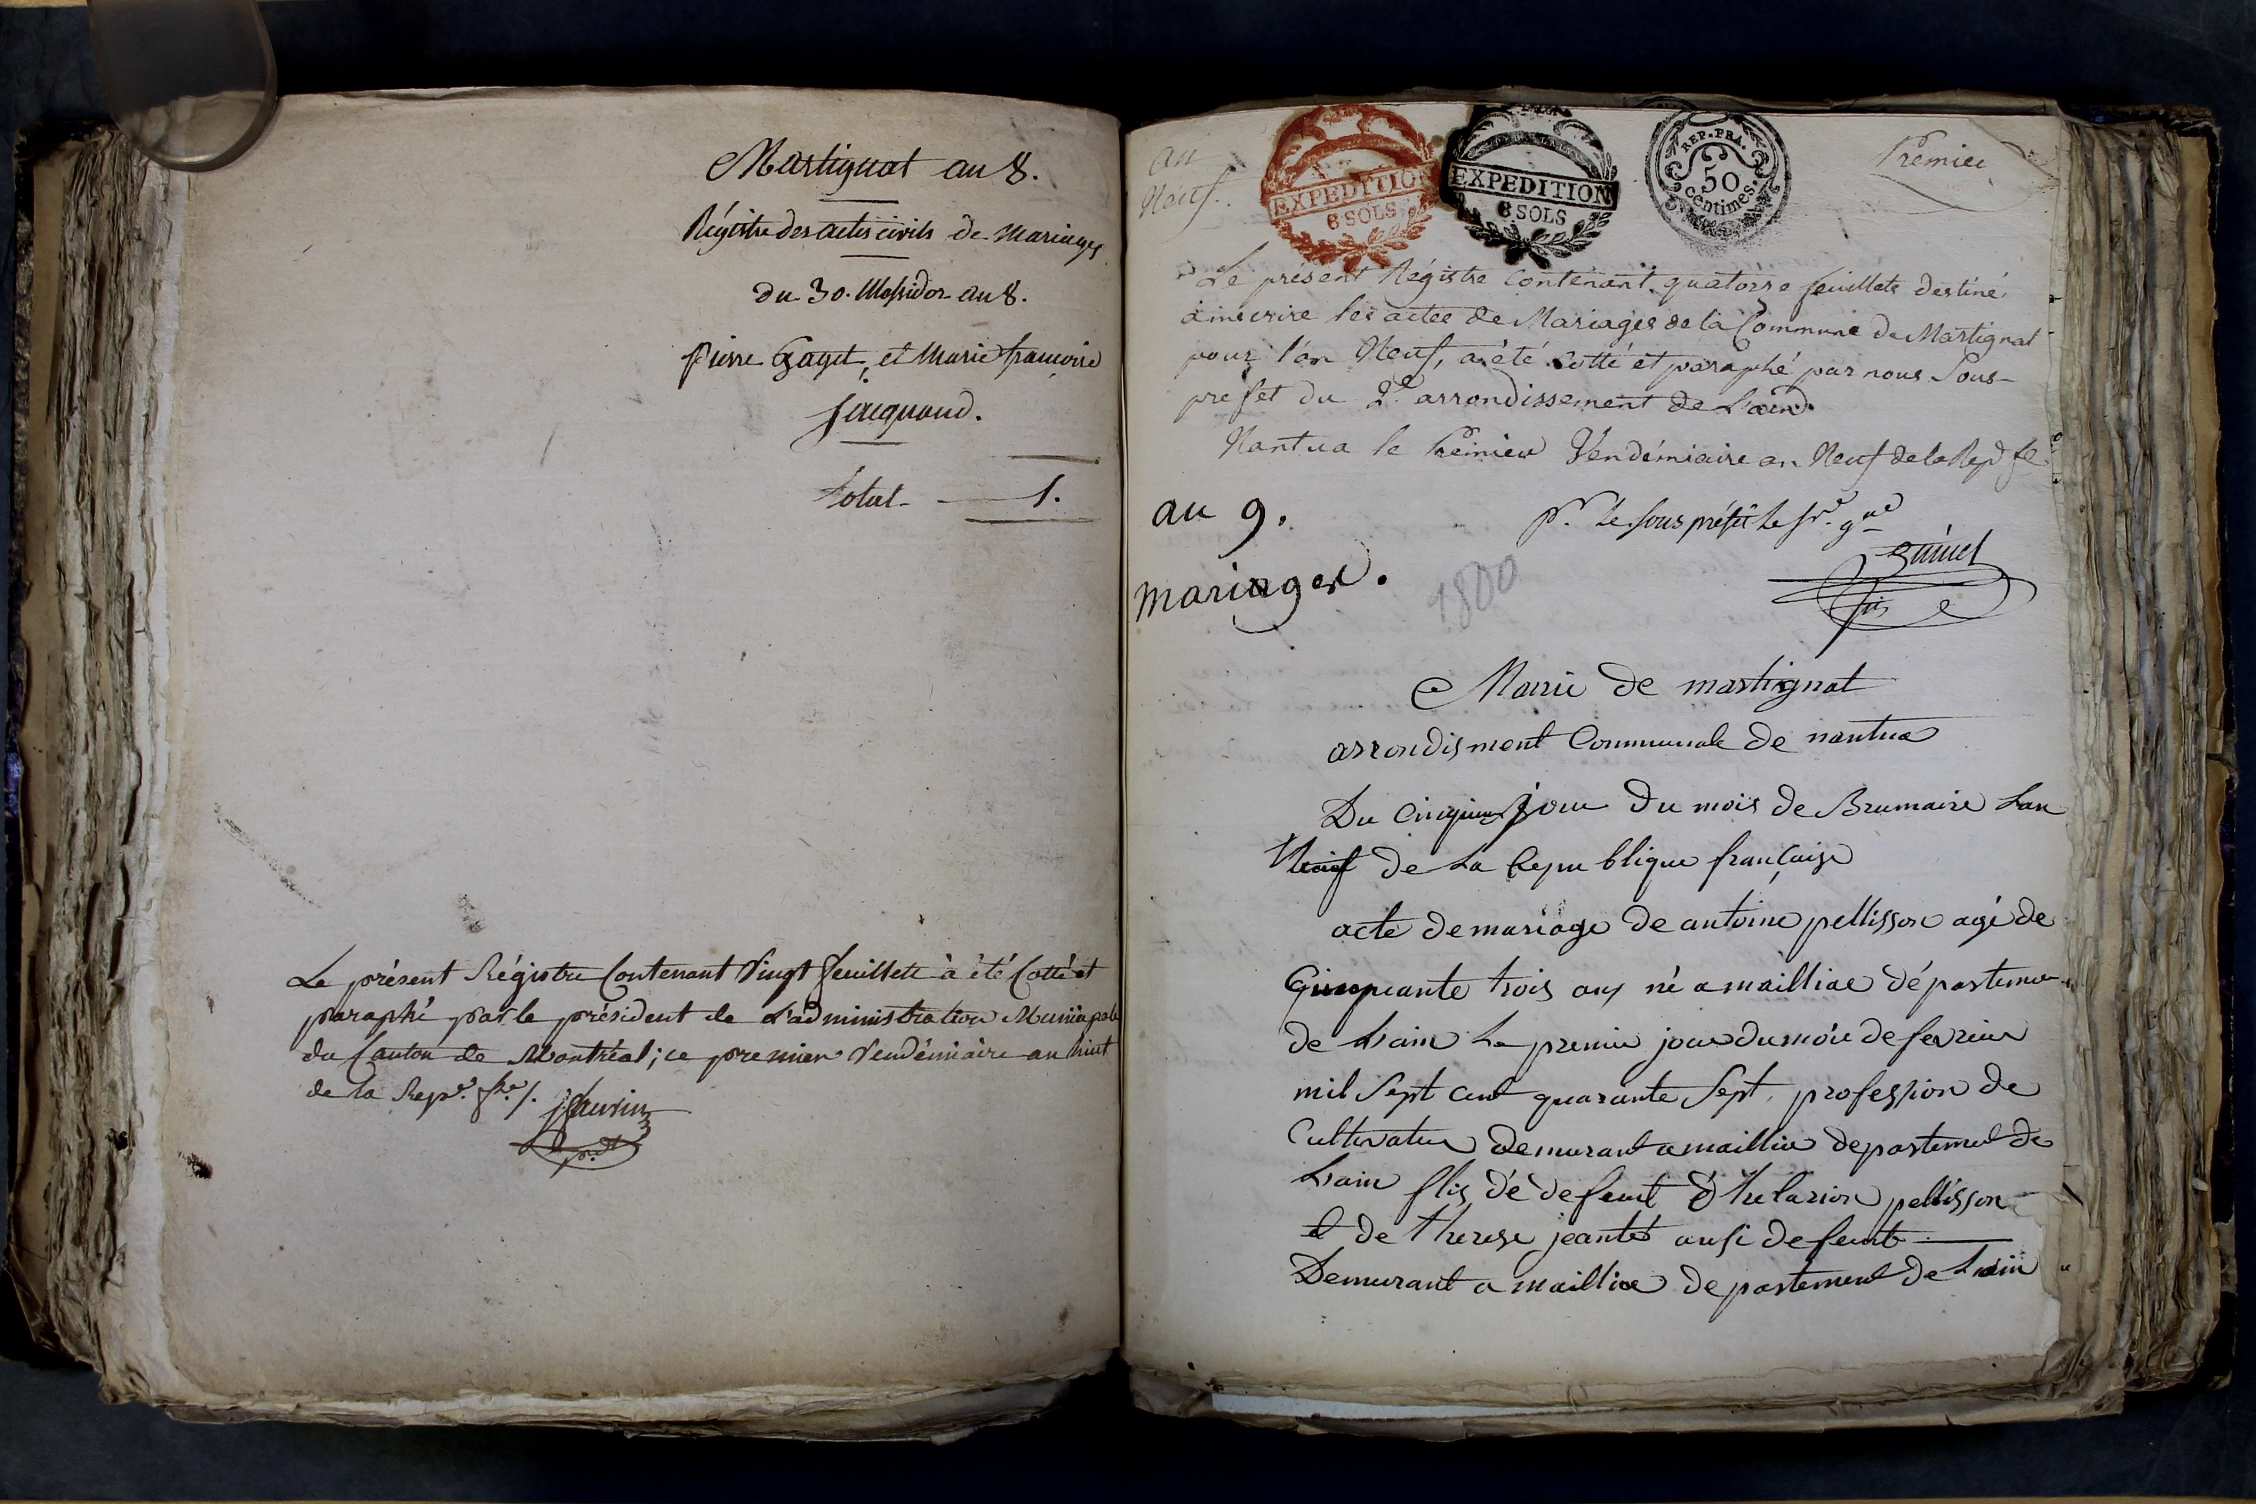 Martignat an 8.
Régistre des actes civils de Mariages
du 30. Messidor an 8.
pierre Gaget, et Marie françoise
Jacquand.
total 1.
Le présent Régistre Contenant Vingt feuillets à été Cotté et
paraphé par le président de L'administration Municipale
du Canton de Montréal; ce premier Vendémiaire an huit
de la Rep.e f.se /.
pr.dt
an
Neuf.
EXPEDITION
6 SOLS
EXPEDITION
6 SOLS
REP. FRA.
50
centimes.
Premier
Le présent Régistre contenant quatorze feuillets destiné
à inscrire les actes de Mariages de la Commune de Martignat
pour l'an Neuf, a été Cotté et paraphé par nous Sous-
préfet du 2e arrondissement de L'ain.
Nantua le Premier Vendémiaire an Neuf de la Rep fe
an 9.
p.r Le sous préfet le
mariages.
1800
Mairie de martignat
arrondisment Communale de nantua
Du Cinquieme jour du mois de Brumaire Lan
Neuf de La Republique française
acte de mariage de antoine pellisson agé de
Cinquante trois ans né a mailliac département
de Lain Le premier jour du mois de fevrier
mil Sept cent quarante Sept, profession de
Cultivateur demurant a maillia departement de
Lain fils dé defeunt helarion pellisson
et de therese jeantet ausi defeunte
Demurant a maillia departement de Lain